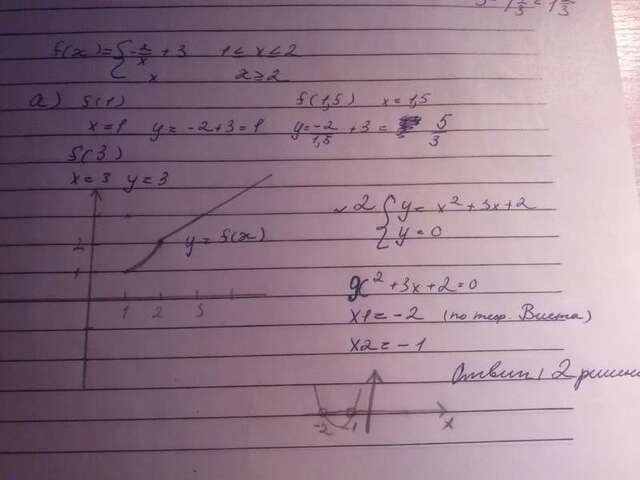 3 - 1 1/3 < 1 2/3
f(x) = { -2/x + 3    1 ≤ x ≤ 2
x    x ≥ 2
а) f(1)    f(1,5)    x = 1,5
x = 1    y = -2+3 = 1    y = -2/1,5 + 3 = 5/3
f(3)
x = 3    y = 3
2 { y = x² + 3x + 2
y = 0
2
y = f(x)
1
x² + 3x + 2 = 0
1    2    3
x1 = -2    (по теор. Виета)
x2 = -1
Ответ: 2 решен
-2    -1    x